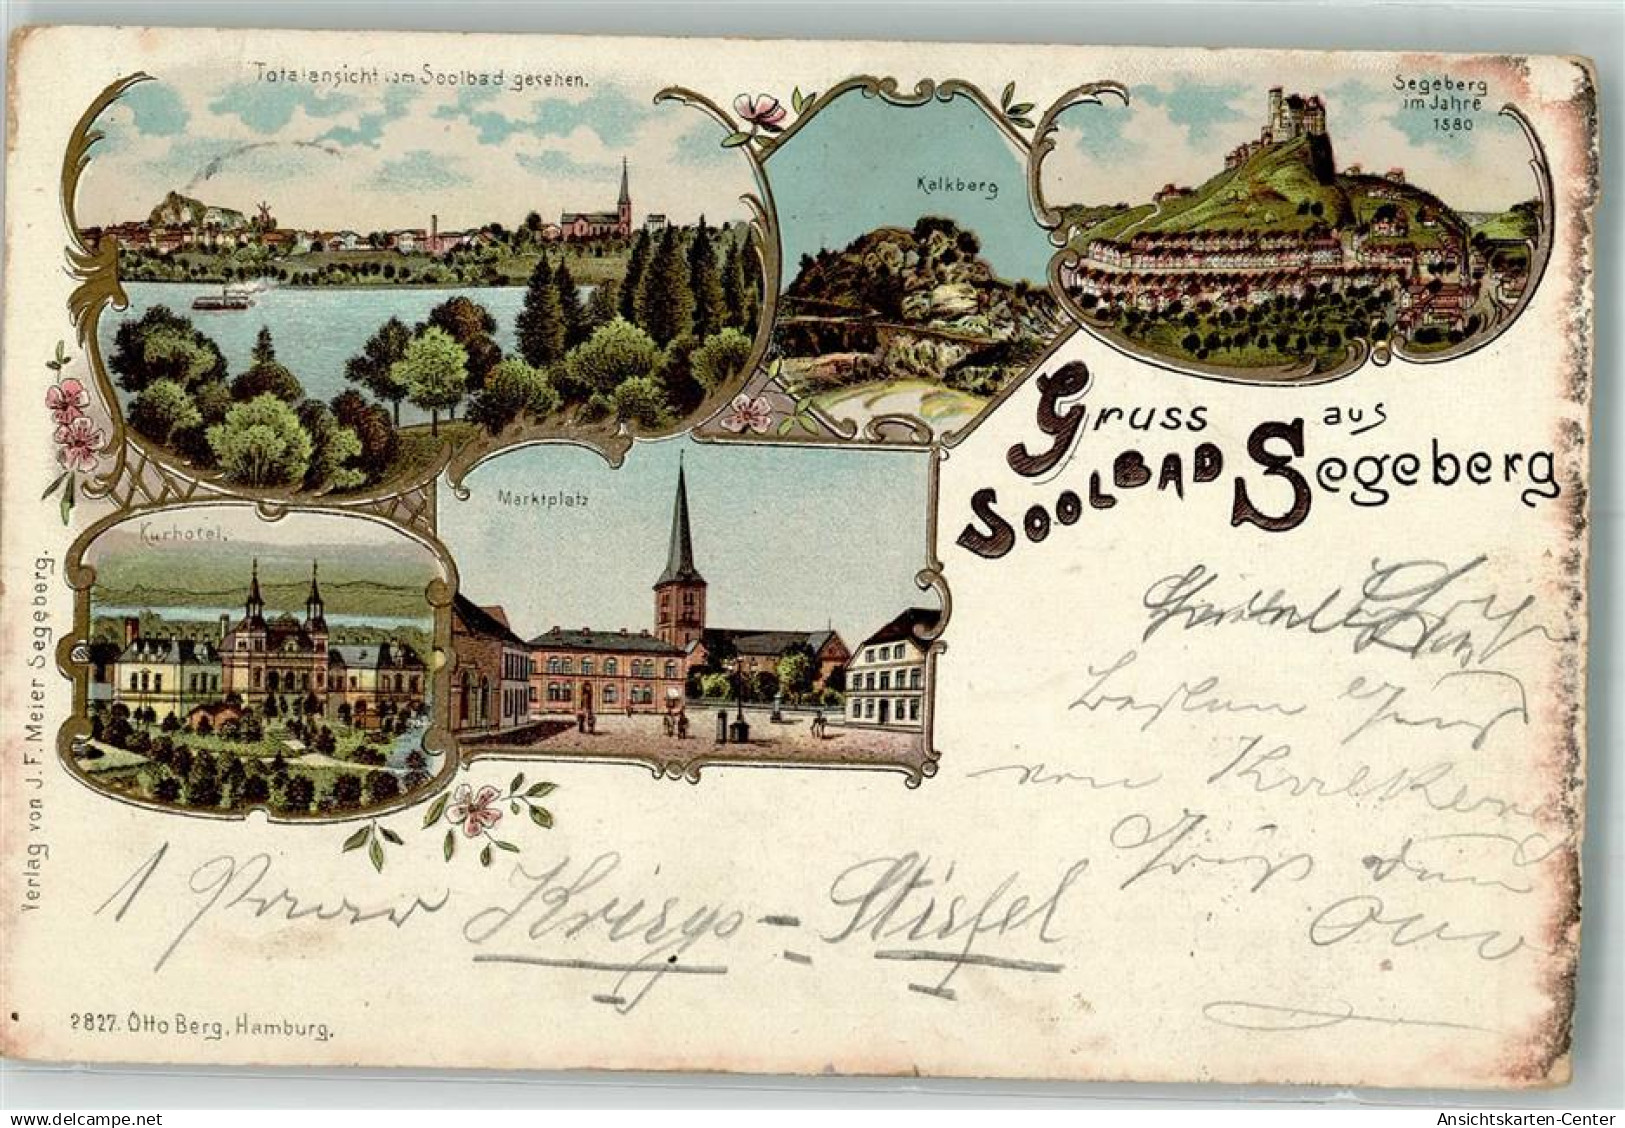 Totalansicht vom Soolbad gesehen.
Kalkberg
Segeberg
im Jahre
1580
Gruss aus
SOOLBAD Segeberg
Marktplatz
Kurhotel.
Verlag von J. F. Meier Segeberg.
von Kalkberg
1 Paar Kriegs-Stiefel
Otto
2827. Otto Berg, Hamburg.
Ansichtskarten-Center